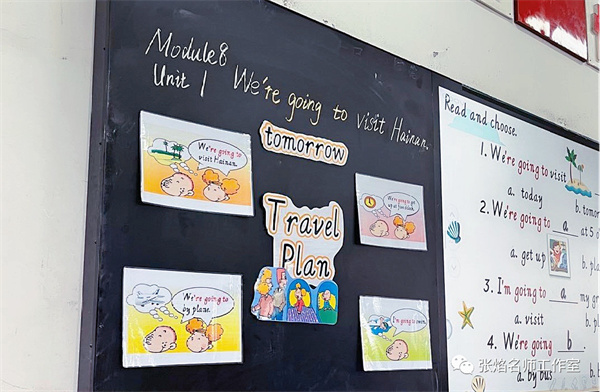 Module8
Unit 1 We're going to visit Hainan.
tomorrow
We're going to
visit Hainan.
We're going to get
up at five o'clock.
Travel
Plan
We're going to
by plane.
I'm going to swim.
Read and choose.
1. We're going to visit
a. today
b. tomor
2. We're going to a at 5 o
a. get up
b. pl
3. I'm going to a my gr
a. visit
b.
4. We're going b
a. by bus
b. by
张焰名师工作室